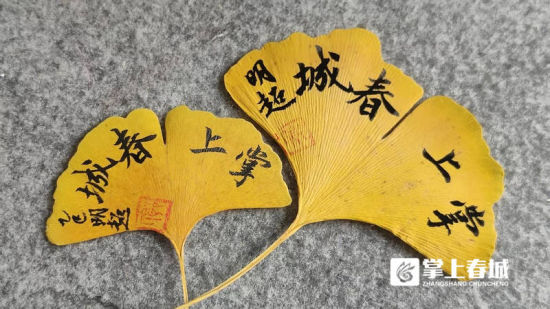 掌上
春城
明超
掌上
春城
明超
掌上春城
ZHANGSHANG CHUNCHENG